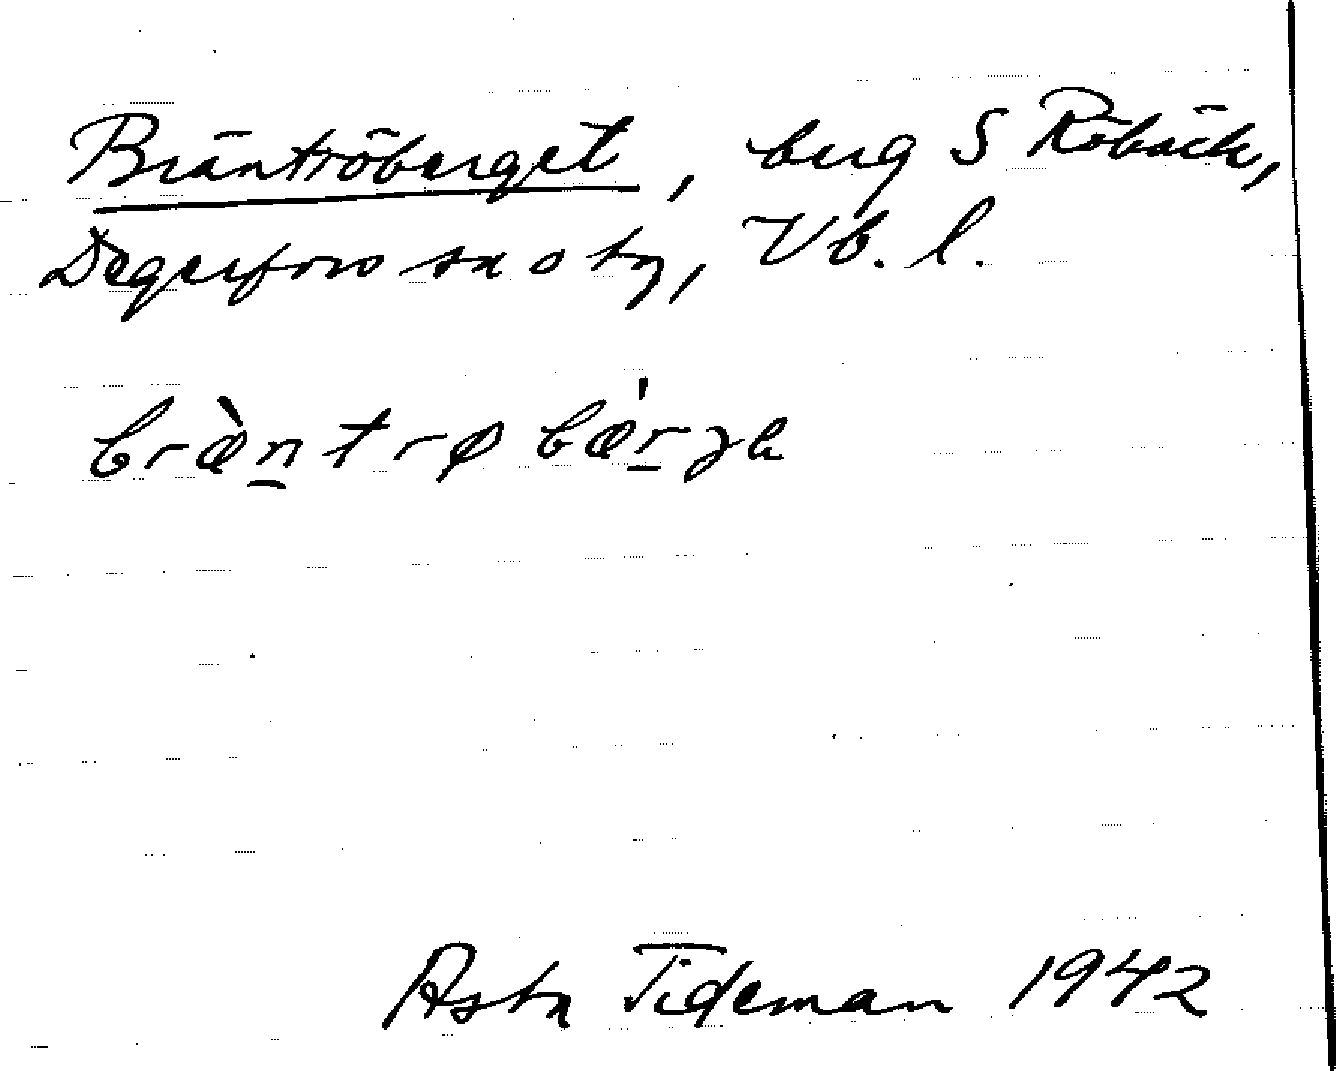 Bräntröberget, berg S Röbäck,
Degerfors sn o tg, Vb. l.
bræ̀n̠trøbær̠'gə
Asta Tideman 1942